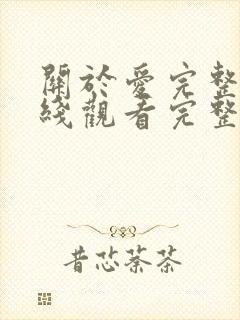 關於愛完整
綫觀看完整
昔芯萘茶